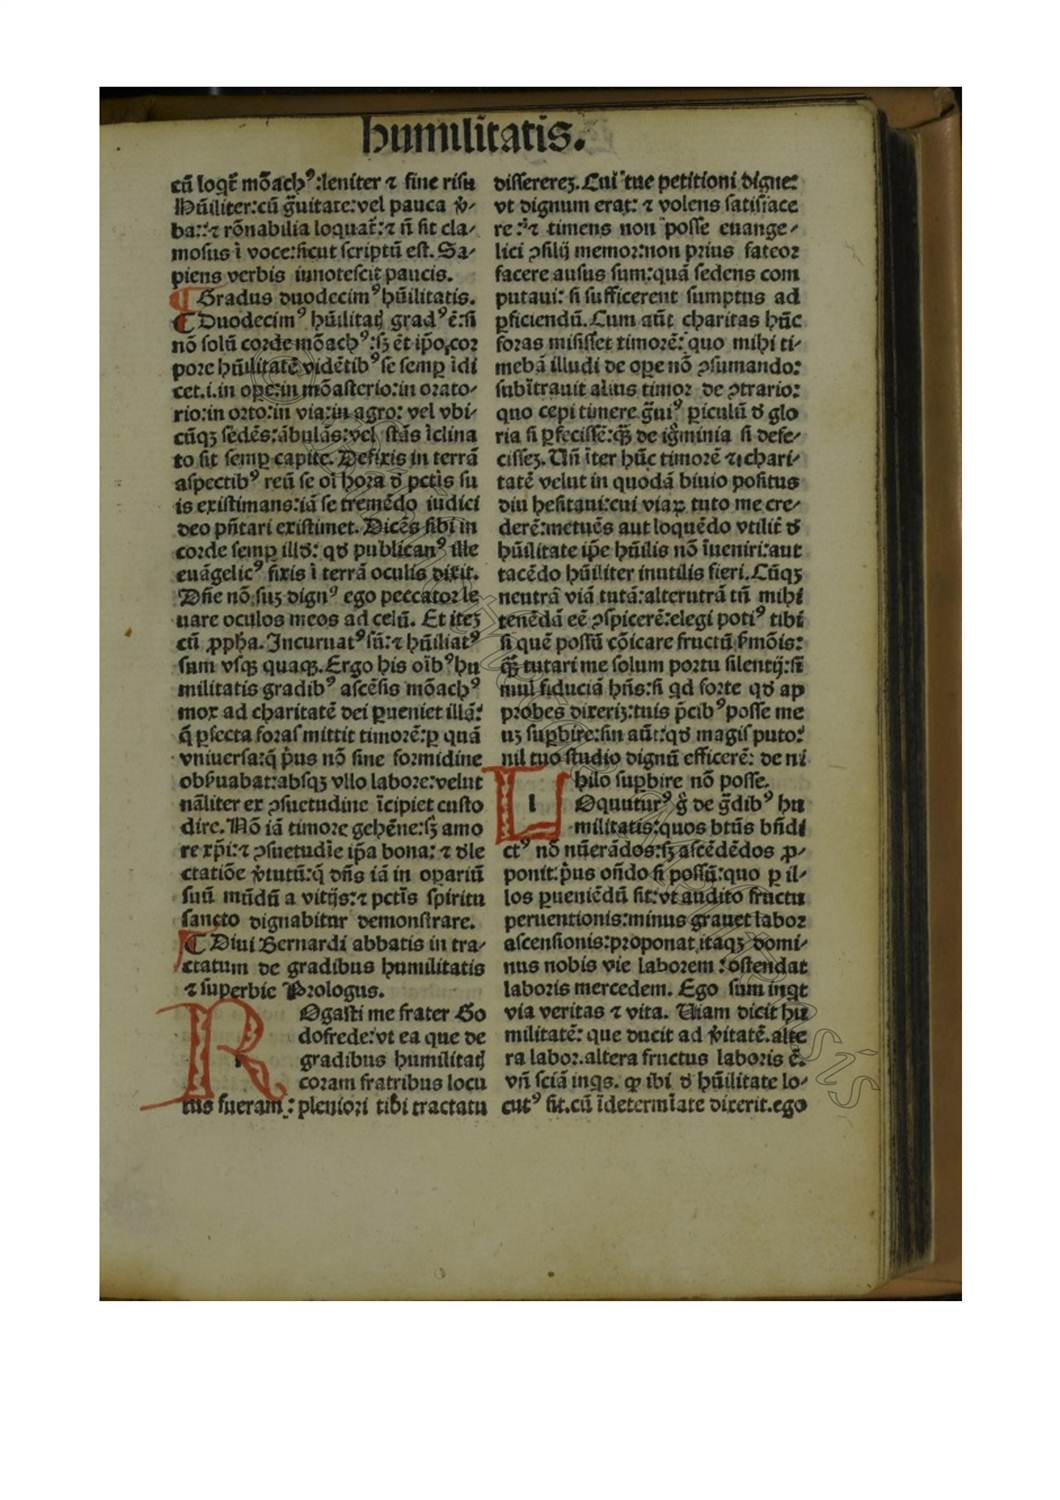 humilitatis.
cū loqt̄ mōachꝰ:leniter ⁊ sine risu
Hūiliter:cū g̃uitate:vel pauca v̾-
ba:⁊ rōnabilia loquat᷑:⁊ ñ sit cla-
mosus ī voce:sicut scriptū est. Sa-
piens verbis innotescit paucis.
¶ Gradus duodecimꝰ hūilitatis.
¶ Duodecimꝰ hūilitatꝭ gradꝰ ē:si
nō solū corde mōachꝰ:sꝫ ēt ip̄o cor
pore hūilitatē vidētibꝰ se semꝑ īdi
cet.i.in oꝑe:in mōasterio:in orato-
rio:in orto:in via:in agro: vel vbi-
cūqꝫ sedēs:ābulās:vel stās īclina
to sit semꝑ capite. Defixis in terrā
aspectibꝰ reū se oī hora ď pctīs su
is existimans:iā se tremēdo iudici
deo pñtari existimet. Dicēs sibi in
corde semꝑ illď: qď publicanꝰ ille
euāgelicꝰ fixis ī terrā oculis dixit.
Dñe nō suꝫ dignꝰ ego peccator le
uare oculos meos ad celū. Et iteꝫ
cū ꝓpha. Incuruatꝰ sū:⁊ hūiliatꝰ
sum vsqꝫ quaqꝫ. Ergo his oībꝰ hu
militatis gradibꝰ ascēsis mōachꝰ
mox ad charitatē dei ꝑueniet illā:
q̄ ꝑfecta foras mittit timorē:ꝑ quā
vniuersa:q̄ p̄us nō sine formidine
obẜuabat:absqꝫ vllo labore:velut
nāliter ex ꝯsuetudine īcipiet custo
dire. Nō iā timore gehēne:sꝫ amo
re xp̄i:⁊ ꝯsuetudīe ip̄a bona: ⁊ ďle
ctatiōe v̾tutū:q̄ dñs iā in oꝑariū
suū mūdū a vitijs:⁊ pctīs spiritu
sancto dignabitur demonstrare.
¶ Diui Bernardi abbatis in tra-
ctatum de gradibus humilitatis
⁊ superbie Prologus.
ROgasti me frater Go
dofrede:vt ea que de
gradibus humilitatꝭ
coram fratribus locu
tus fueram: pleniori tibi tractatu
dissererēꝫ. Cui tue petitioni digne:
vt dignum erat: ⁊ volens satisface
re:⁊ timens non posse euange-
lici ꝯsilij memor:non prius fateor
facere ausus sum:quā sedens com
putaui: si sufficerent sumptus ad
ꝑficiendū. Cum aūt charitas hūc
foras misisset timorē: quo mihi ti-
mebā illudi de oꝑe nō ꝯsumando:
subītrauit alius timor de ꝯtrario:
quo cepi timere g̃uiꝰ ꝑiculū ď glo
ria si ꝑfecissē:qꝫ̄ de ig̃minia si defe-
cisseꝫ. Uñ īter hūc timorē ⁊ chari-
tatē velut in quodā biuio positus
diu hesitaui:cui viaꝝ tuto me cre-
derē:metuēs aut loquēdo vtilit̄ ď
hūilitate ip̄e hūilis nō īueniri:aut
tacēdo hūiliter inutilis fieri. Cūqꝫ
neutrā viā tutā:alterutrā tñ mihi
tenēdā eē ꝯspicerē:elegi potiꝰ tibi
si quē possū cōicare fructū ẜmōis:
qꝫ̄ tutari me solum portu silentij:sī
mul fiduciā hñs:si qd forte qď ap
probes dixeriꝫ:tuis p̄cibꝰ posse me
uꝫ suꝑbire:sin aūt:qď magis puto:
nil tuo studio dignū efficerē: de ni
hilo suꝑbire nō posse.
LOquuturꝰ g̊ de g̃dibꝰ hu
militatis:quos btūs bñdi
ctꝰ nō nūerādos:sꝫ ascēdēdos ꝓ-
ponit:p̄us oñdo si possū:quo ꝑ il-
los ꝑueniēdū sit:vt audito fructu
peruentionis:minus grauet labor
ascensionis:proponat itaqꝫ domi-
nus nobis vie laborem: ostendat
laboris mercedem. Ego sum inqt
via veritas ⁊ vita. Uiam dicit hu
militatē: que ducit ad v̾itatē.alte
ra labor.altera fructus laboris ē.
vñ sciā inqs. ꝙ ibi ď hūilitate lo-
cutꝰ sit.cū īdetermīate dixerit.ego